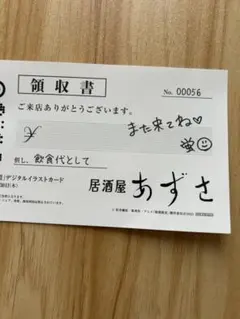 領収書
No. 00056
ご来店ありがとうございます。
¥
また来てね♡
蛍
但し、飲食代として
居酒屋 あずさ
デジタルイラストカード